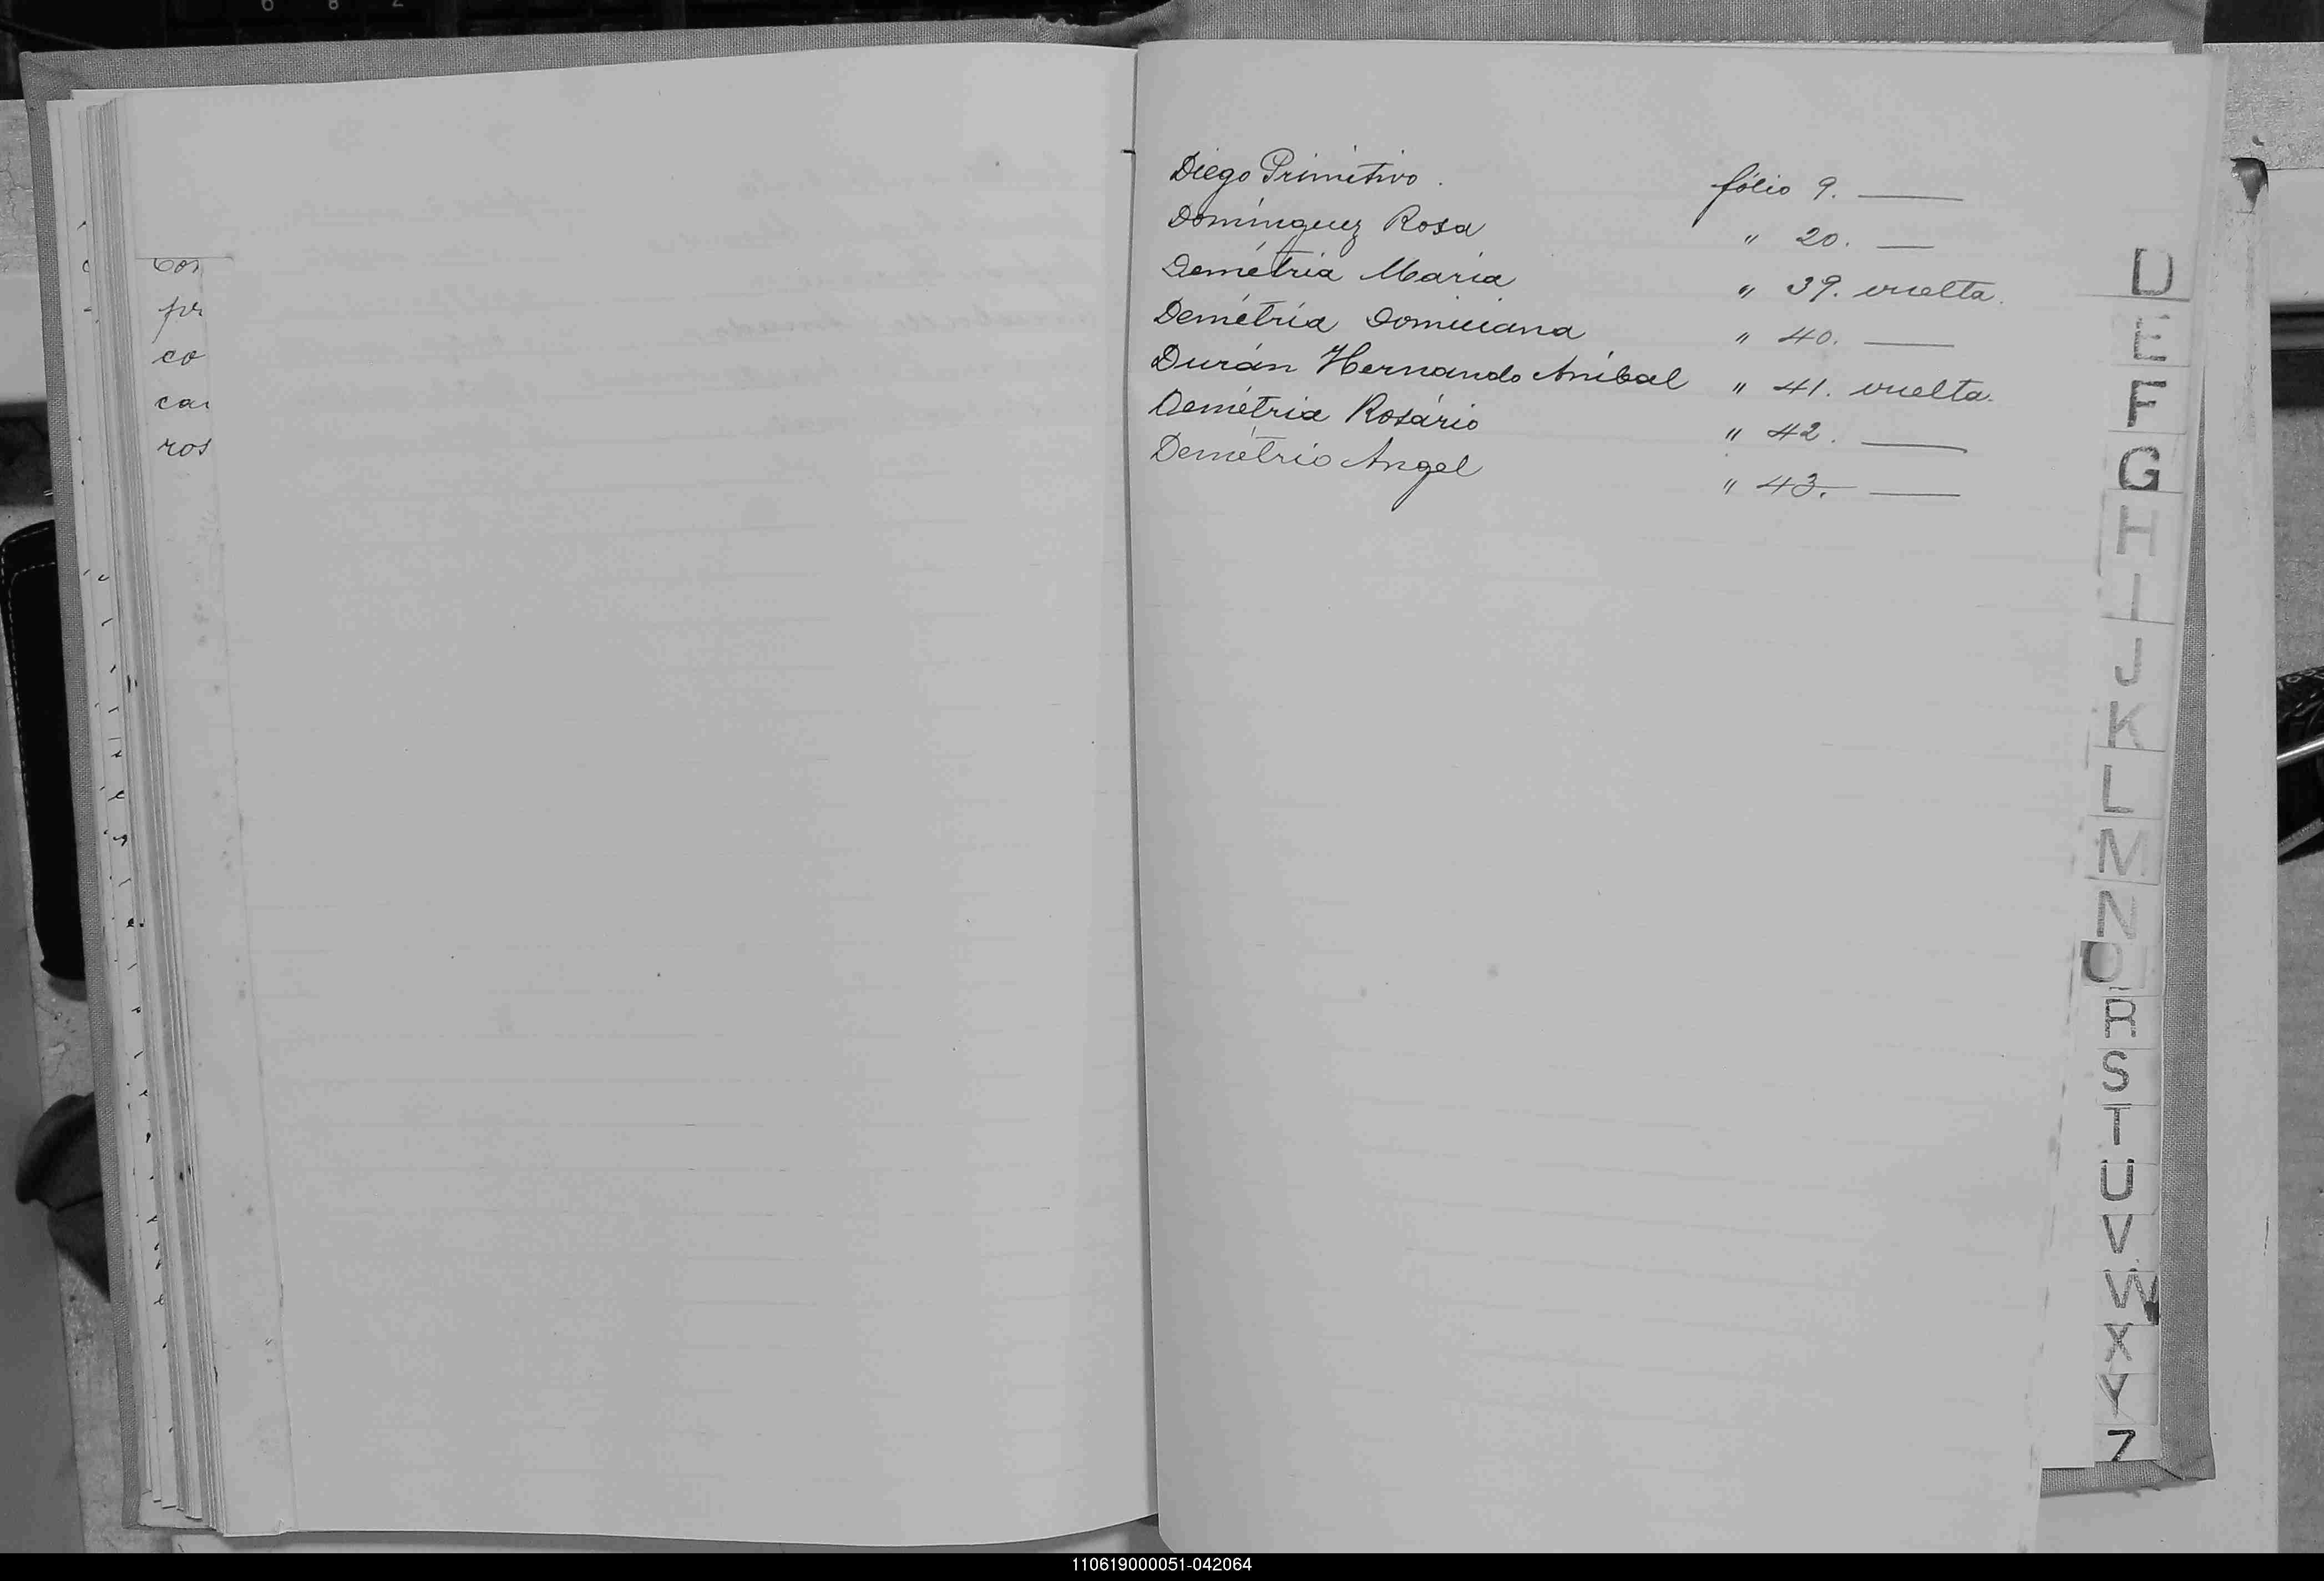 pr
co
ros
Diego Primitivo. fólio 9. ——
Domínguez Rosa " 20. —
Demétria Maria " 39. vuelta.
Demétria Domiciana " 40. ——
Durán Hernando Aníbal " 41. vuelta.
Demétria Rosário " 42. ——
Demétrio Angel " 43. ——
D
E
F
G
H
I
J
K
L
M
N
O
R
S
T
U
V
W
X
Y
Z
110619000051-042064